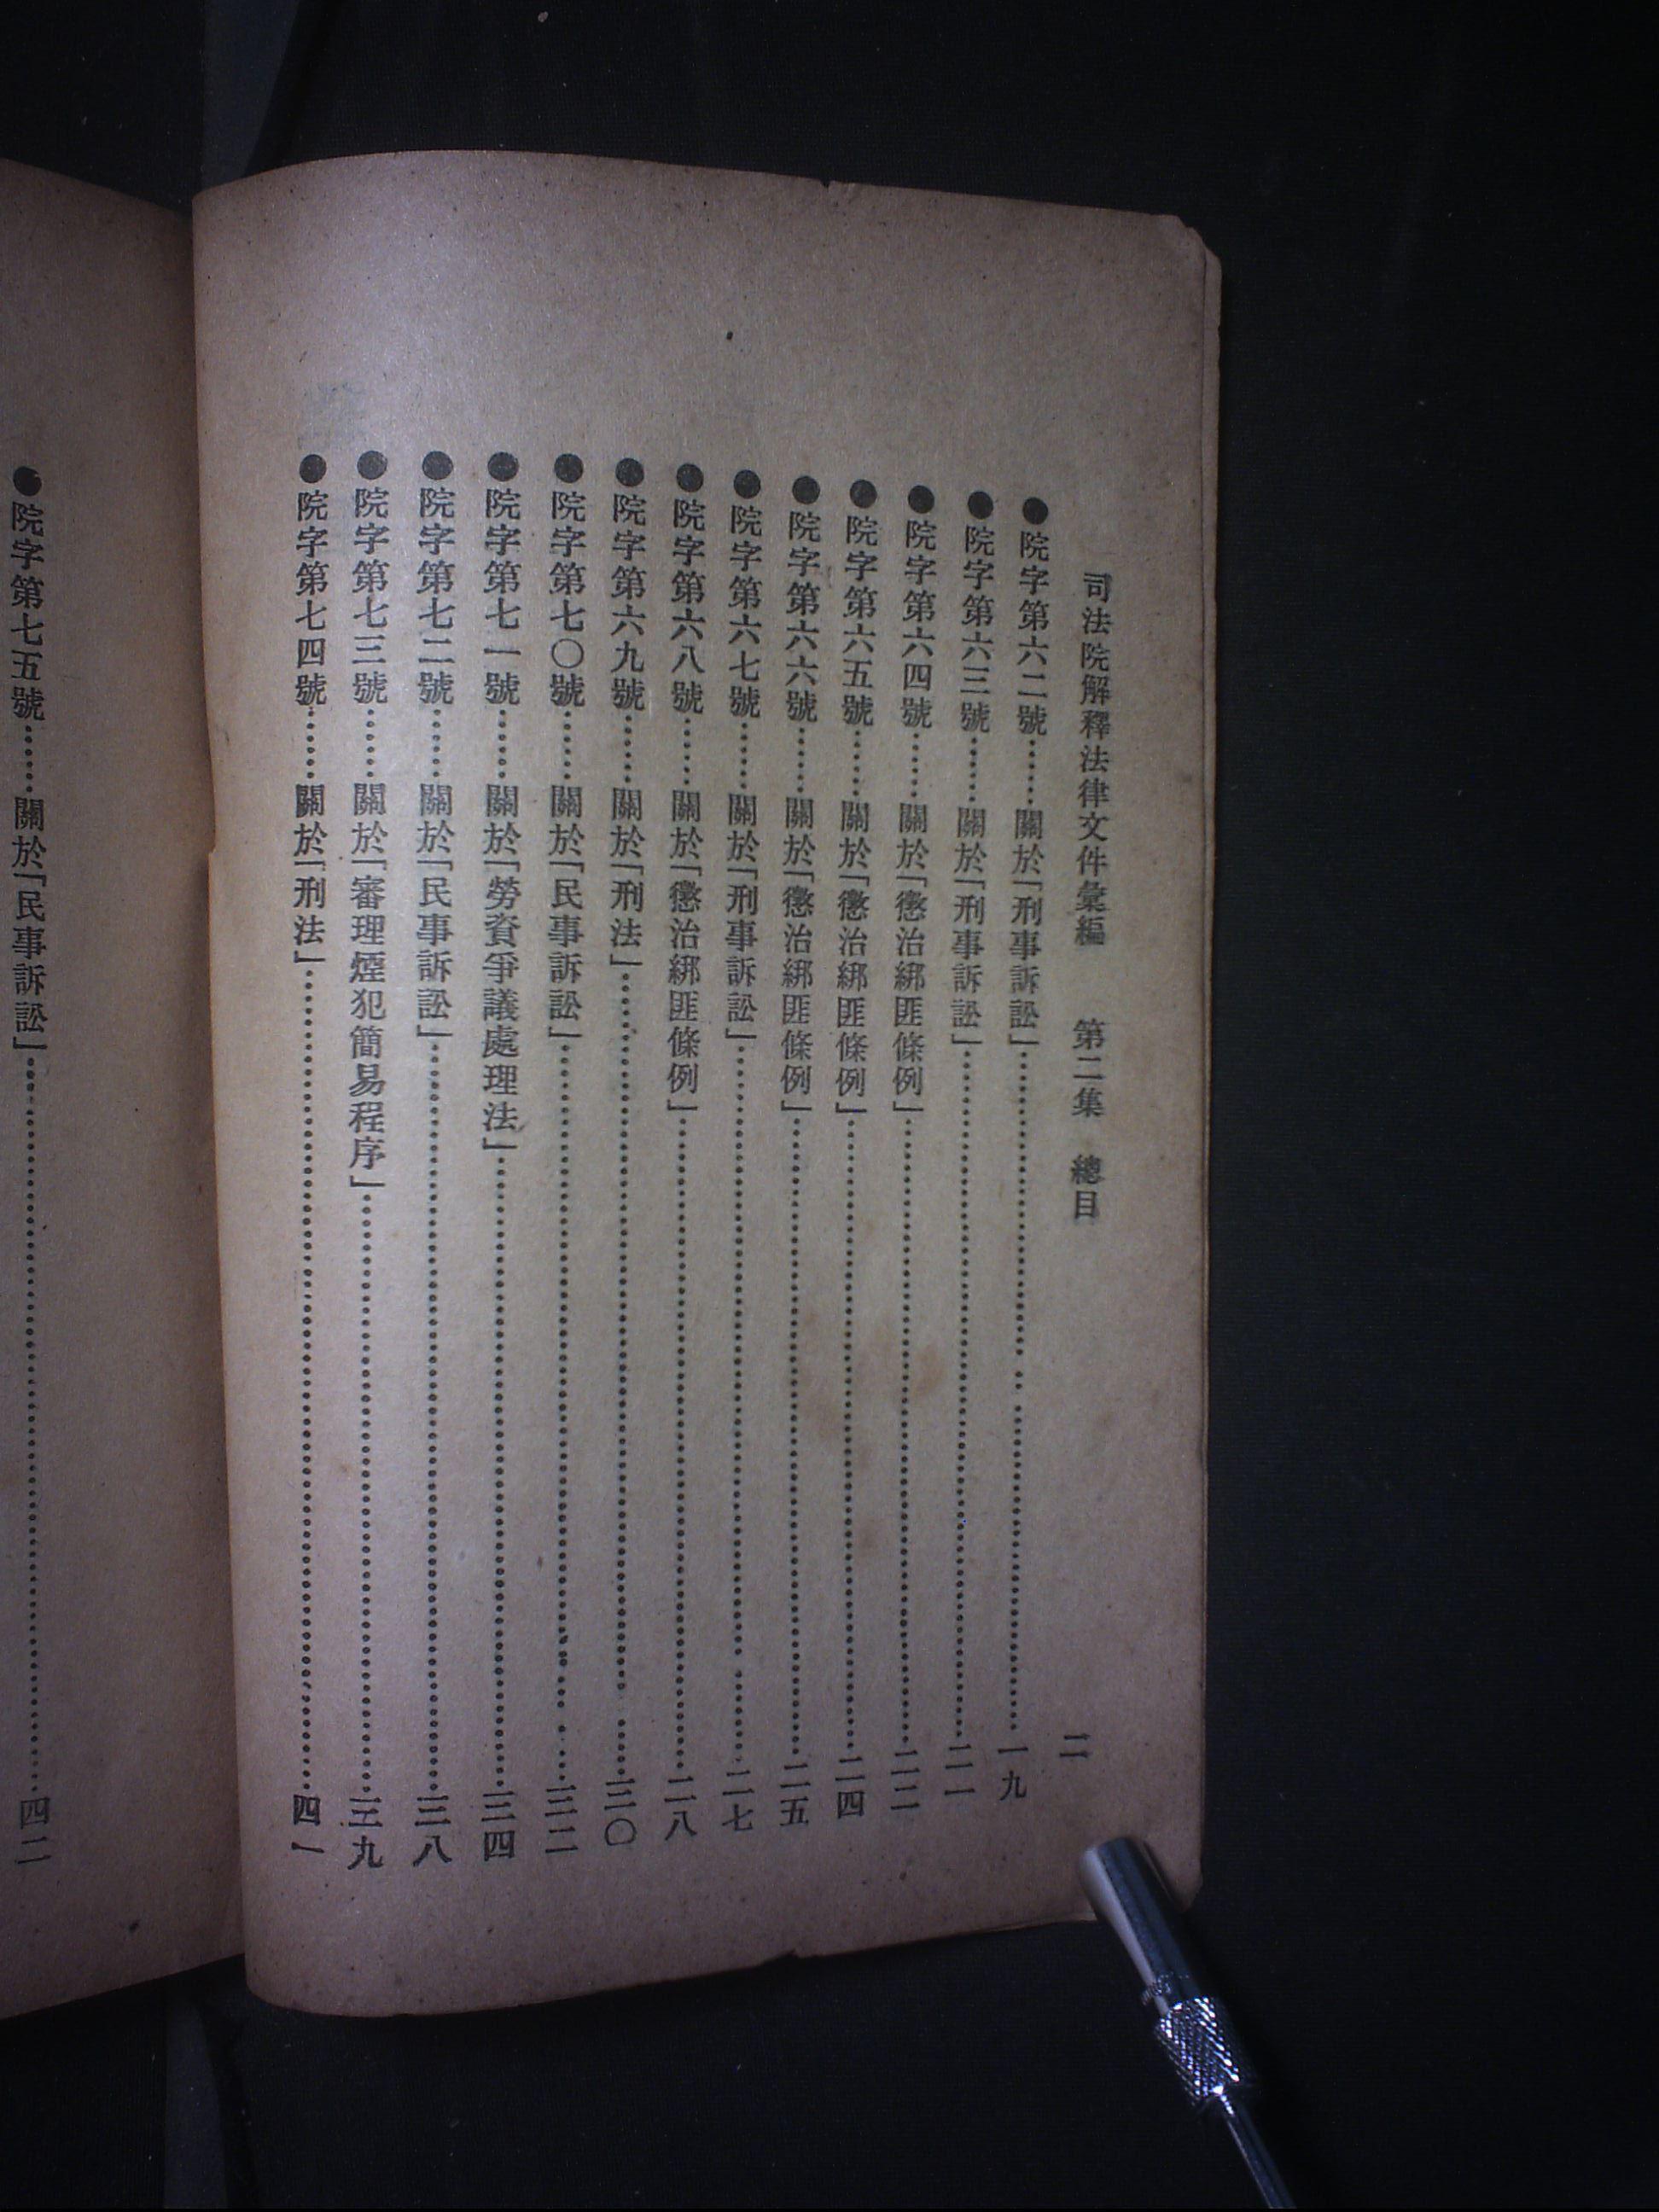 司法院解釋法律文件彙編　第二集　總目　二
●院字第六二號……關於「刑事訴訟」……一九
●院字第六三號……關於「刑事訴訟」……二一
●院字第六四號……關於「懲治綁匪條例」……二二
●院字第六五號……關於「懲治綁匪條例」……二四
●院字第六六號……關於「懲治綁匪條例」……二五
●院字第六七號……關於「刑事訴訟」……二七
●院字第六八號……關於「懲治綁匪條例」……二八
●院字第六九號……關於「刑法」……三〇
●院字第七〇號……關於「民事訴訟」……三二
●院字第七一號……關於「勞資爭議處理法」……三四
●院字第七二號……關於「民事訴訟」……三八
●院字第七三號……關於「審理煙犯簡易程序」……三九
●院字第七四號……關於「刑法」……四一
●院字第七五號……關於「民事訴訟」……四二